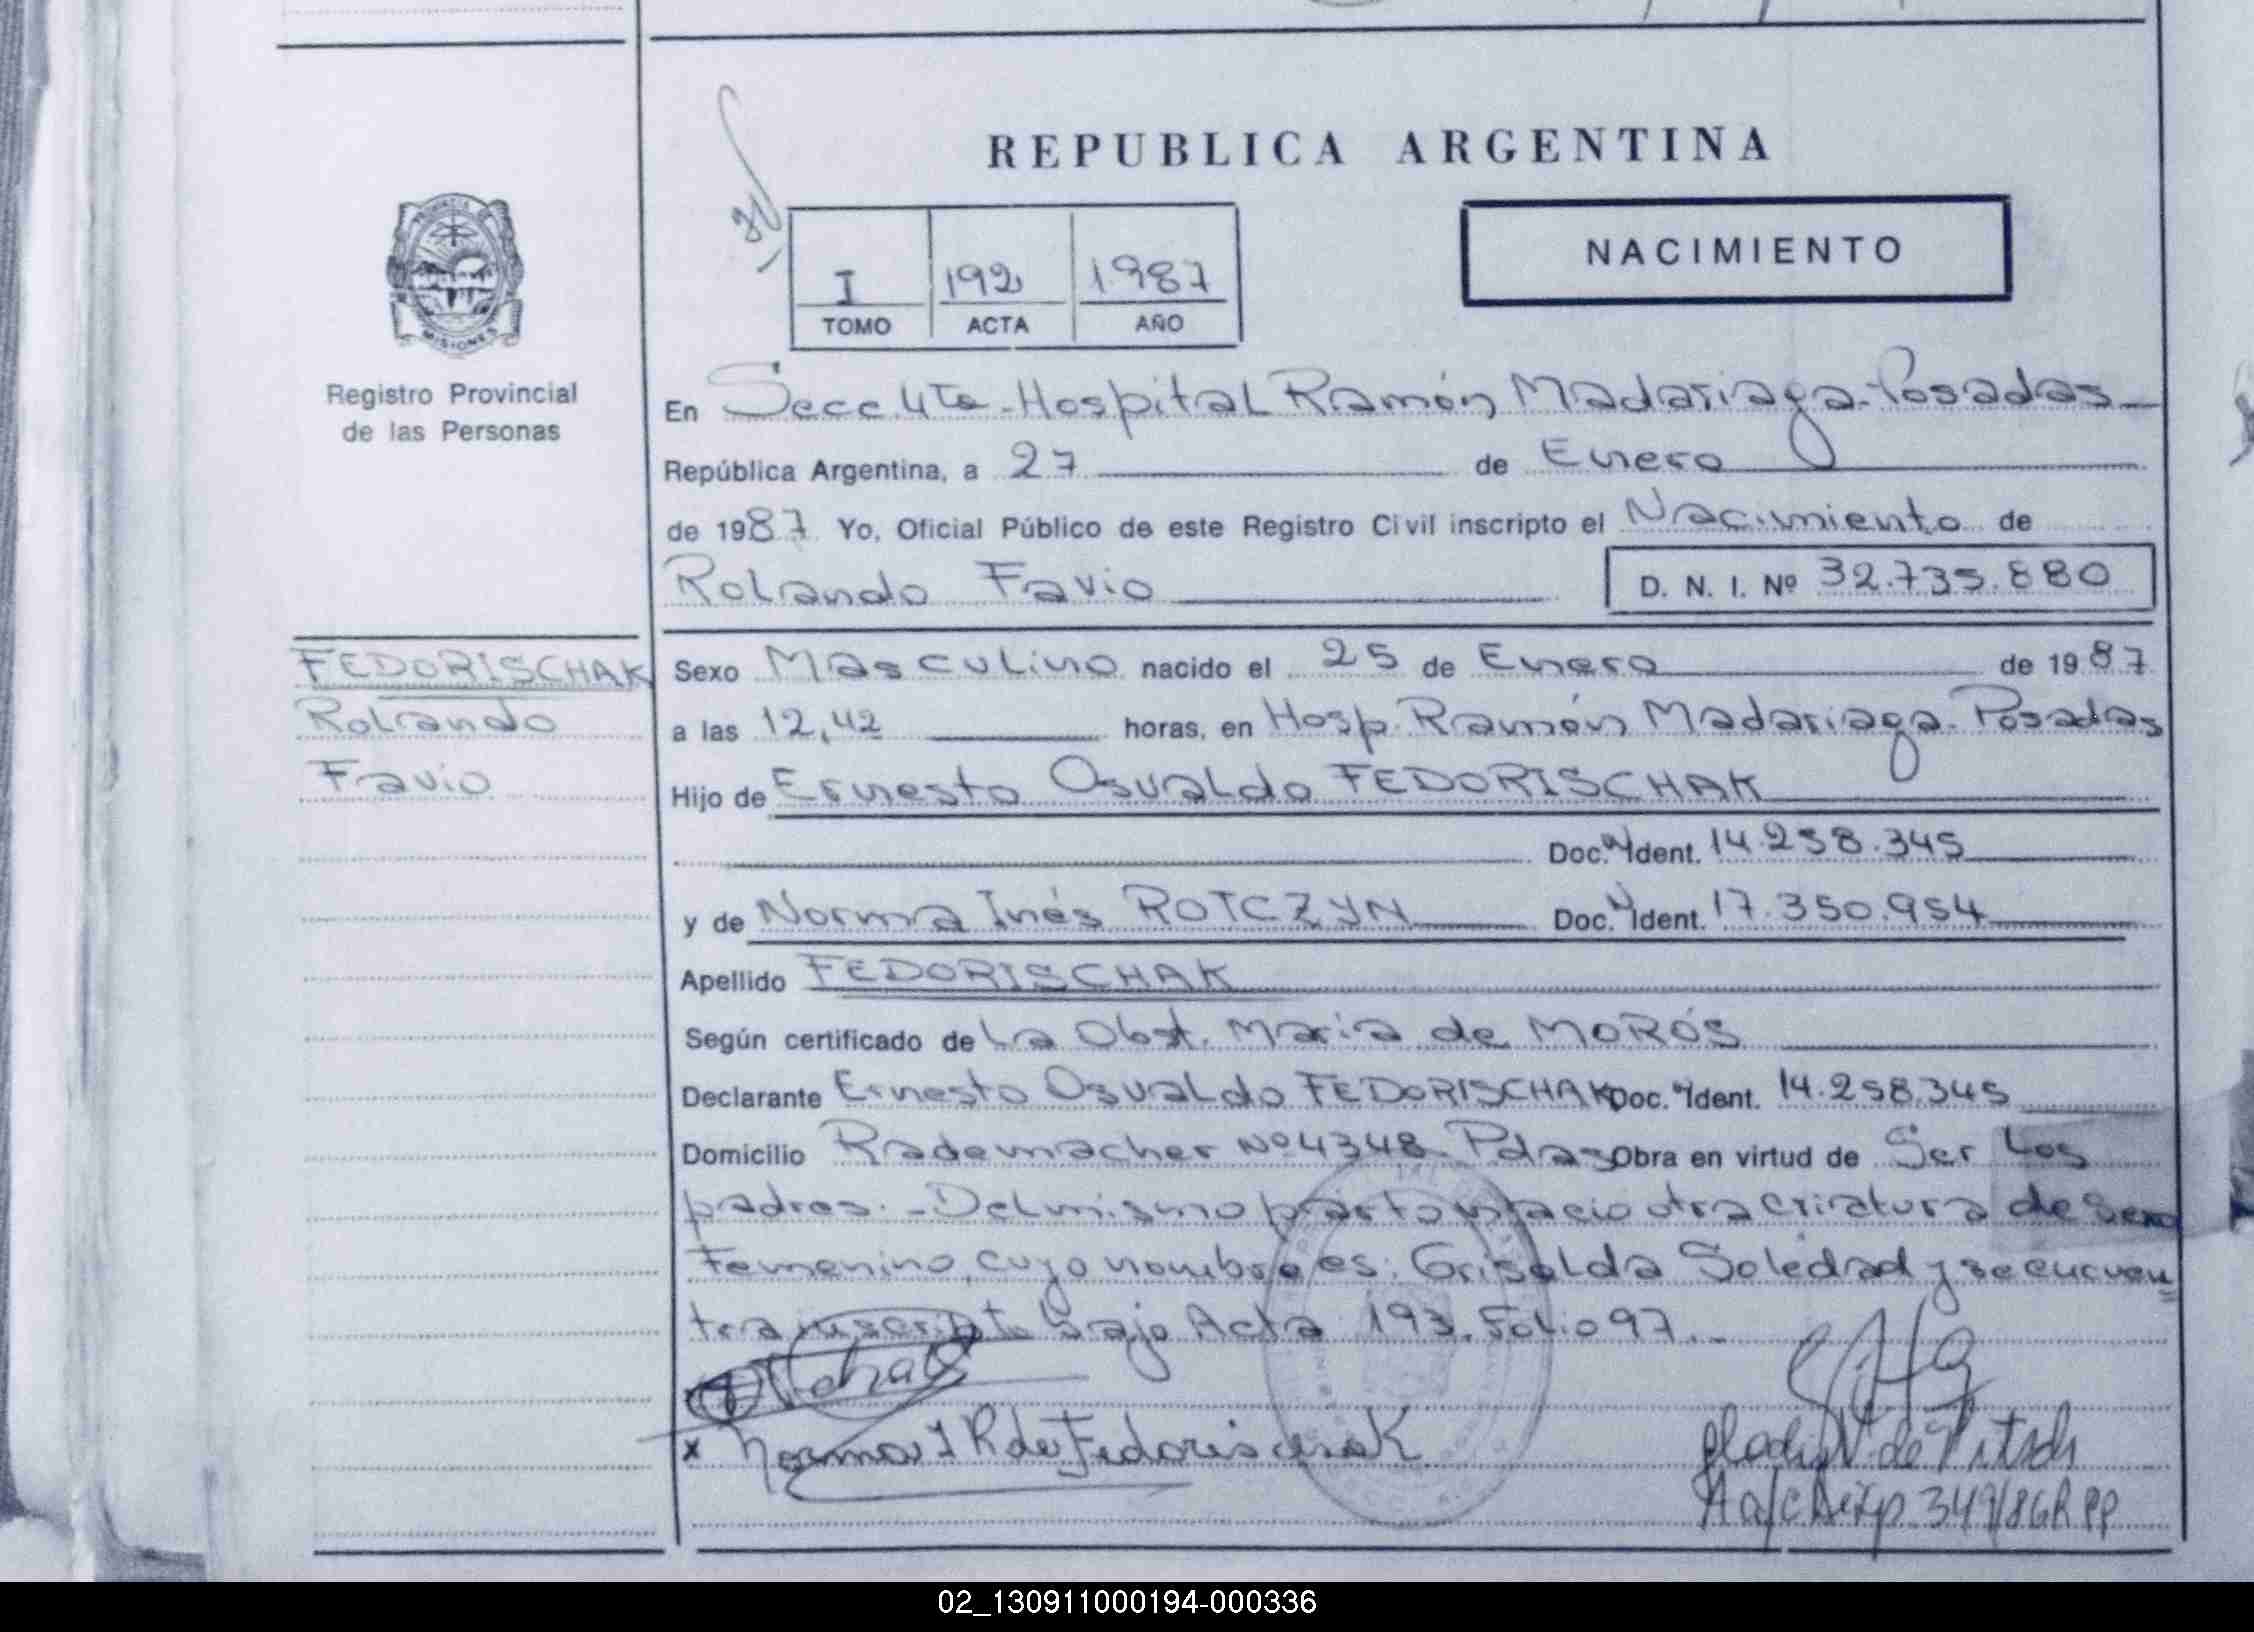 REPUBLICA ARGENTINA
NACIMIENTO
I 192 1987
TOMO ACTA AÑO
PROVINCIA DE
MISIONES
Registro Provincial
de las Personas
En Secc. 4ta - Hospital Ramón Madariaga - Posadas
República Argentina, a 27 de Enero
de 1987 Yo, Oficial Público de este Registro Civil inscripto el Nacimiento de
Rolando Favio D. N. I. Nº 32.735.880
FEDORISCHAK
Rolando
Favio
Sexo Masculino nacido el 25 de Enero de 1987
a las 12,42 horas, en Hosp. Ramón Madariaga - Posadas
Hijo de Ernesto Osvaldo FEDORISCHAK
Doc. Ident. 14.258.345
y de Norma Inés ROTCZYN Doc. Ident. 17.350.954
Apellido FEDORISCHAK
Según certificado de La Obst. Maria de MOROS
Declarante Ernesto Osvaldo FEDORISCHAK Doc. Ident. 14.258.345
Domicilio Rademacher Nº 4348 - Pdas Obra en virtud de Ser los
padres. - Del mismo parto nacio otra criatura de sexo
Femenino, cuyo nombre es: Griselda Soledad y se encuen=
tra inscripta bajo Acta 193. Folio 97. -
x Norma I R de Fedorischak
02_130911000194-000336